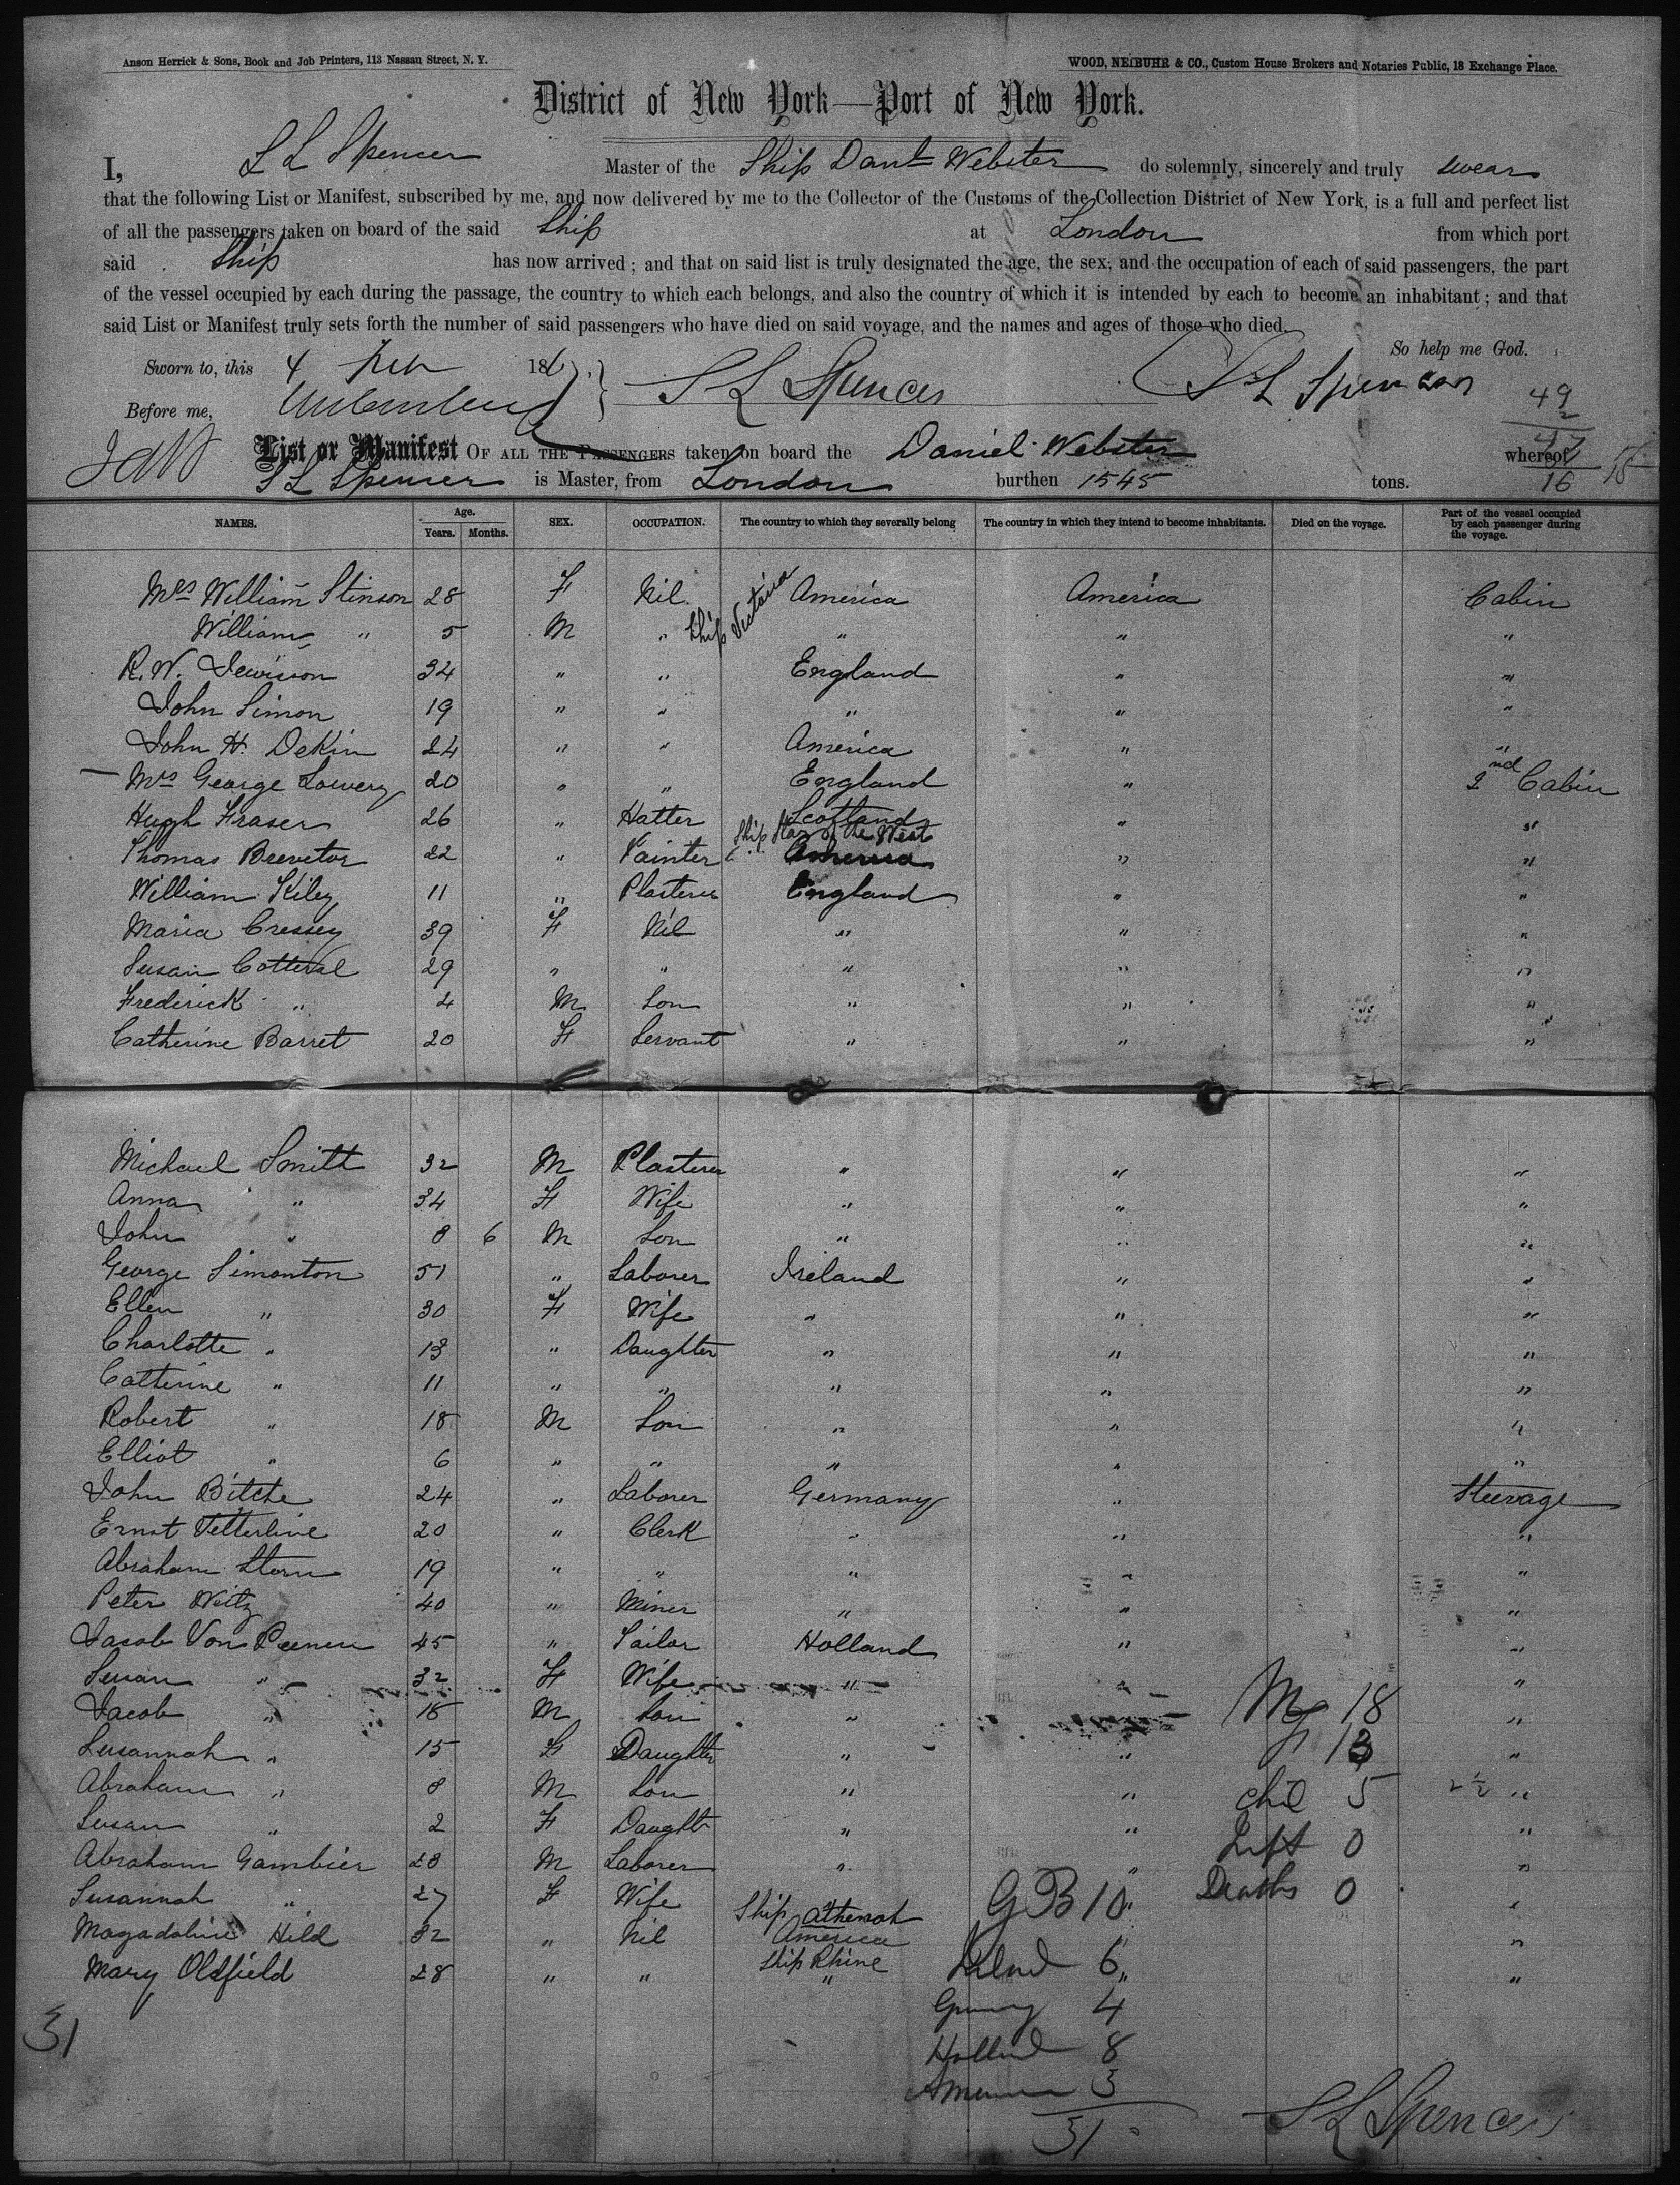 Anson Herrick & Sons, Book and Job Printers, 113 Nassau Street, N. Y.
WOOD, NEIBUHR & CO., Custom House Brokers and Notaries Public, 18 Exchange Place.
District of New York—Port of New York.
I, S L Spencer Master of the Ship Danl Webster do solemnly, sincerely and truly swear
that the following List or Manifest, subscribed by me, and now delivered by me to the Collector of the Customs of the Collection District of New York, is a full and perfect list
of all the passengers taken on board of the said Ship at London from which port
said Ship has now arrived; and that on said list is truly designated the age, the sex, and the occupation of each of said passengers, the part
of the vessel occupied by each during the passage, the country to which each belongs, and also the country of which it is intended by each to become an inhabitant; and that
said List or Manifest truly sets forth the number of said passengers who have died on said voyage, and the names and ages of those who died.
So help me God.
Sworn to, this 4 186
S L Spencer
S L Spencer
Before me,
49
2
47
16
List or Manifest OF ALL THE PASSENGERS taken on board the Daniel Webster whereof
S L Spencer is Master, from London burthen 1545 tons.
NAMES. Age. Years. Months. SEX. OCCUPATION. The country to which they severally belong The country in which they intend to become inhabitants. Died on the voyage. Part of the vessel occupied by each passenger during the voyage.
Mrs William Stinson 28 F Nil Ship Victoria America America Cabin
William " 5 M " " " "
R. W. Jewison 34 " " England " "
John Simon 19 " " " " "
John H. Dekin 24 " " America " "
Mrs George Lowery 20 " " England " 2nd Cabin
Hugh Fraser 26 " Hatter Scotland " "
Thomas Brevetor 22 " Painter Ship Star of the West America " "
William Kiley 11 " Plasterer England " "
Maria Cressey 39 F Nil " " "
Susan Cotteral 29 " " " " "
Frederick " 4 M Son " " "
Catherine Barret 20 F Servant " " "
Michael Smith 32 M Plasterer " " "
Anna " 34 F Wife " " "
John " 8 6 M Son " " "
George Simonton 51 " Laborer Ireland " "
Ellen " 30 F Wife " " "
Charlotte " 13 " Daughter " " "
Catherine " 11 " " " " "
Robert " 18 M Son " " "
Elliot " 6 " " " " "
John Bitche 24 " Laborer Germany " Steerage
Ernst Vetterline 20 " Clerk " " "
Abraham Storn 19 " " " " "
Peter Weitz 40 " Miner " " "
Jacob Von Peenen 45 " Tailor Holland " "
Susan " 32 F Wife " " "
Jacob " 18 M Son " " M 18 "
Susannah " 15 F Daughter " " F 13 "
Abraham " 8 M Son " " Chil 5 2 ½ "
Susan " 2 F Daughtr " " Left 0 "
Abraham Gambier 28 M Laborer " " "
Susannah " 27 F Wife GB 10 " Deaths 0 "
Magadaline Hild 32 " Nil Ship Athenah America " "
Mary Oldfield 28 " " Ship Rhine " Irelnd 6 " "
Germany 4
31
Holland 8
America 3
31
S L Spencer